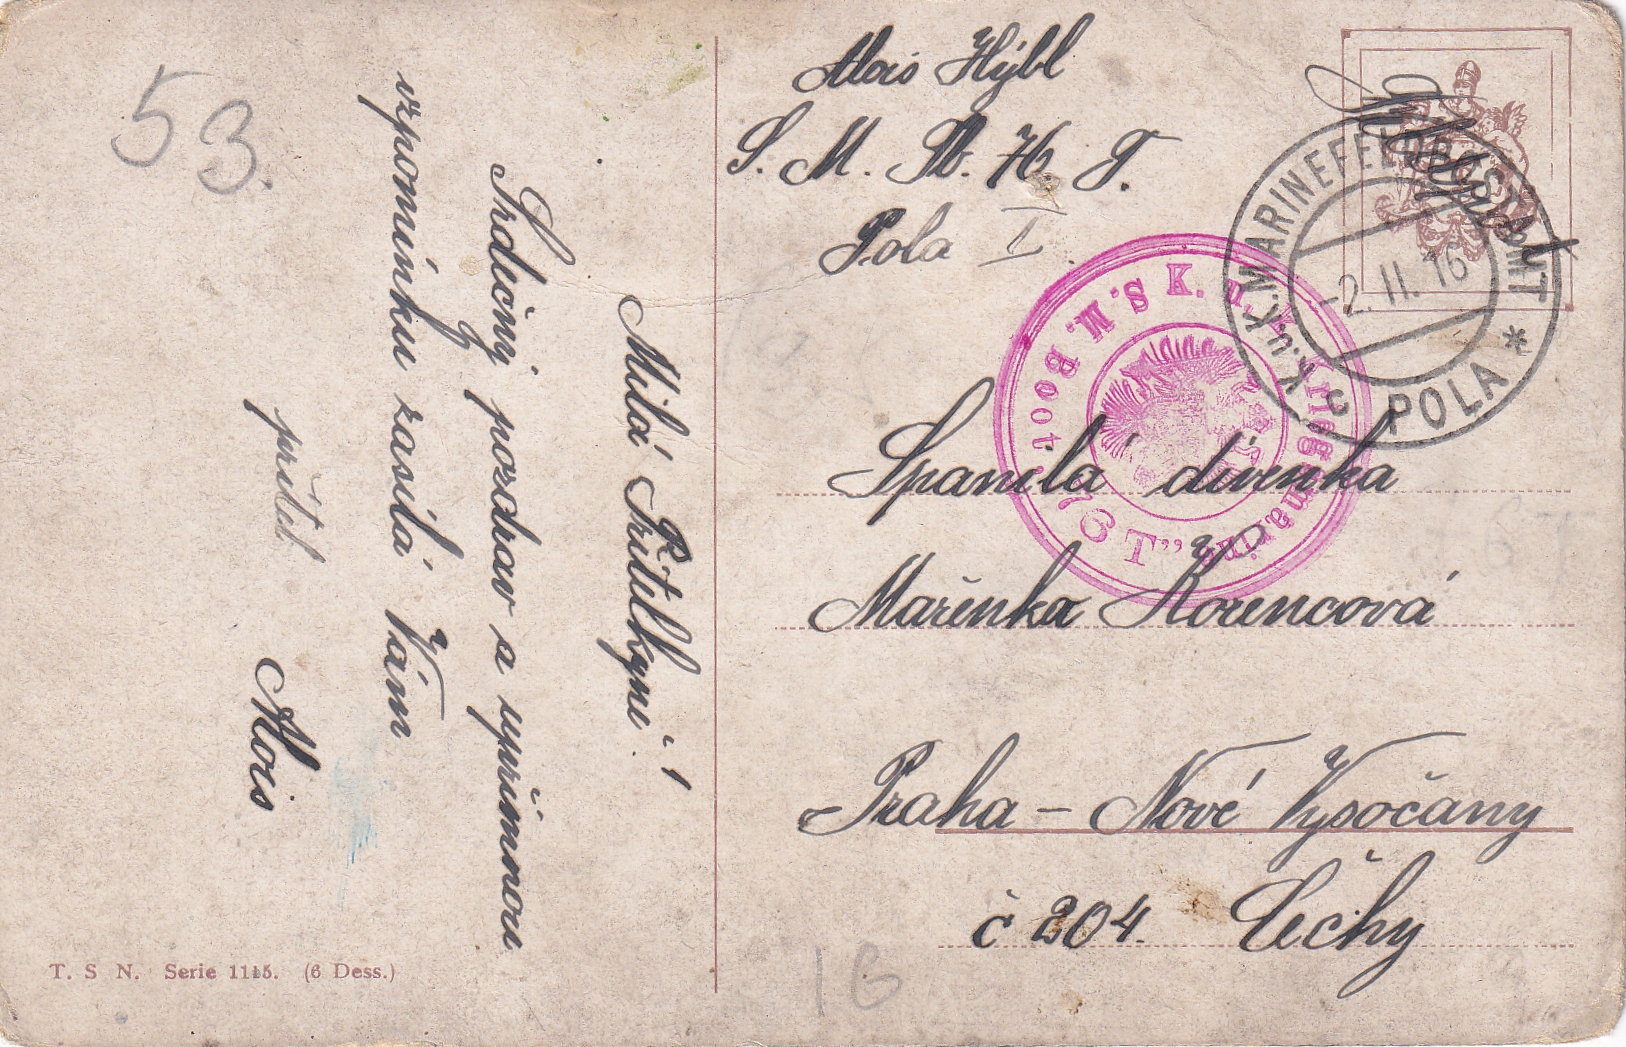 53.
Milá Přítelkyně!
Srdečný pozdrav a upřímnou
vzpomínku zasílá Vám
přítel
Alois
T. S. N. Serie 1115. (6 Dess.)
Alois Hýbl
S. M. Tb. 76. T.
Pola I
Feldpost
K.u.K. MARINEFELDPOSTAMT
-2.II.16
c POLA *
K. u. k. Kriegsmarine
S. M. Boot „76 T"
Spanilá divenka
Mařenka Kořencová
Praha – Nové Vysočany
č 204. Čechy
16